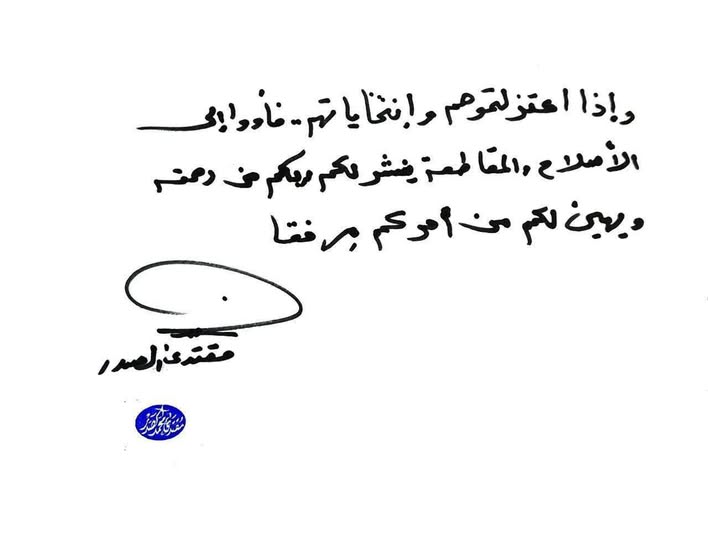 وإذا اعتزلتموهم وإنتخاباتهم .. فأووا إلى
الأصلاح والمقاطعة ينشر لكم ربكم من رحمته
ويهيئ لكم من أمركم مرفقا
مقتدى الصدر